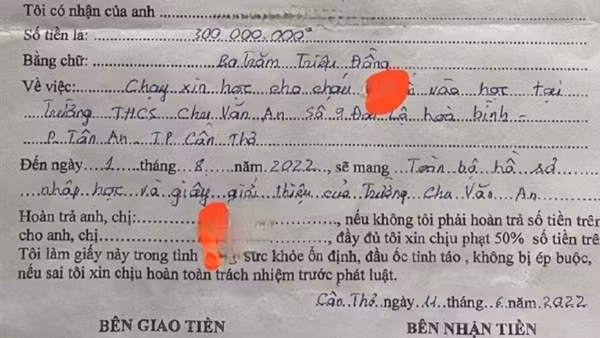 Tôi có nhận của anh
Số tiền là: 300.000.000đ
Bằng chữ: Ba Trăm Triệu Đồng
Về việc: Chạy xin học cho cháu vào học tại
Trường THCS Chu Văn An Số 9 Đại Lộ hoà bình -
P. Tân An - T.P Cần Thơ
Đến ngày 1 tháng 8 năm 2022, sẽ mang Toàn bộ hồ sơ
nhập học và giấy giới thiệu của Trường Chu Văn An
Hoàn trả anh, chị: , nếu không tôi phải hoàn trả số tiền trên
cho anh, chị , đầy đủ tôi xin chịu phạt 50% số tiền trê
Tôi làm giấy này trong tình sức khỏe ổn định, đầu ốc tỉnh táo , không bị ép buộc,
nếu sai tôi xin chịu hoàn toàn trách nhiệm trước phát luật.
Cần Thơ ngày 11 tháng 6 năm 2022
BÊN GIAO TIỀN BÊN NHẬN TIỀN